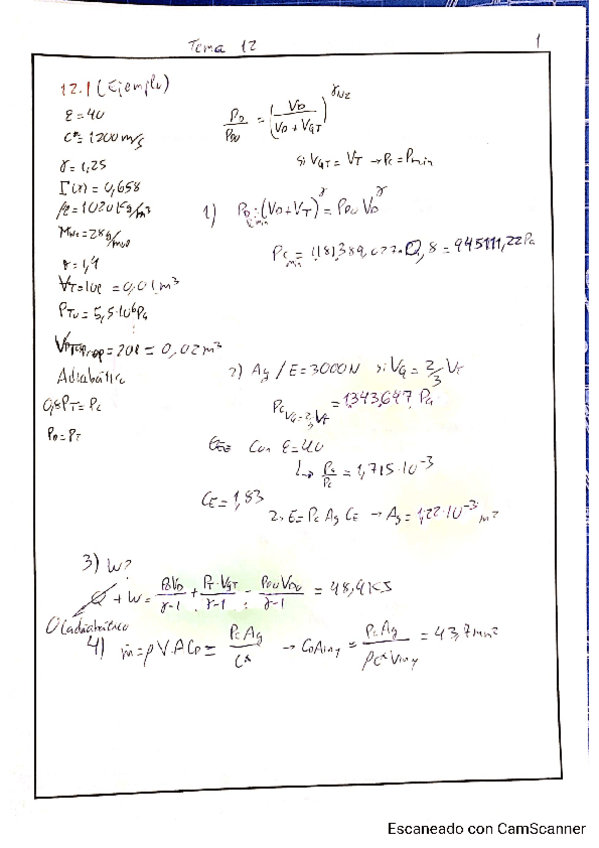 Tema 12
1
12.1 (Ejemplo)
ε = 40
C* = 1200 m/s
γ = 1,25
Γ(γ) = 0,658
ρ = 1020 Kg/m³
= 28 g/mol
γ = 1,4
V_T = 10l = 0,01 m³
P_T0 = 5,5·10⁶ Pa
V_Prop = 20l = 0,02 m³
Adiabático
0,8P_T = P_c
P_D = P_T
P_D/P_D0 = (V_D/(V_D + V_GT))^γ_N2
si V_GT = V_T → P_c = P_min
1) P_D min·(V_D + V_T)^γ = P_D0 V_D^γ
P_c min = 1181389,027·0,8 = 945111,22 Pa
2) Ag / E = 3000N si V_G = 2/3 V_T
P_c V_G = 2/3 V_T = 1343,647 Pa
Con ε = 40
↳ P_s/P_c = 1,715·10⁻³
C_E = 1,83
2. E = P_c Ag C_E → Ag = 1,22·10⁻³ m²
3) W?
Q + W = P_D V_D/(γ-1) + P_T·V_GT/(γ-1) - P_D0 V_D0/(γ-1) = 48,4 KJ
0 (adiabático)
4) ṁ = ρ V·A C_D = P_c Ag/C* → C_D A_iny = P_c Ag/(ρ C* V_iny) = 43,7 mm²
Escaneado con CamScanner